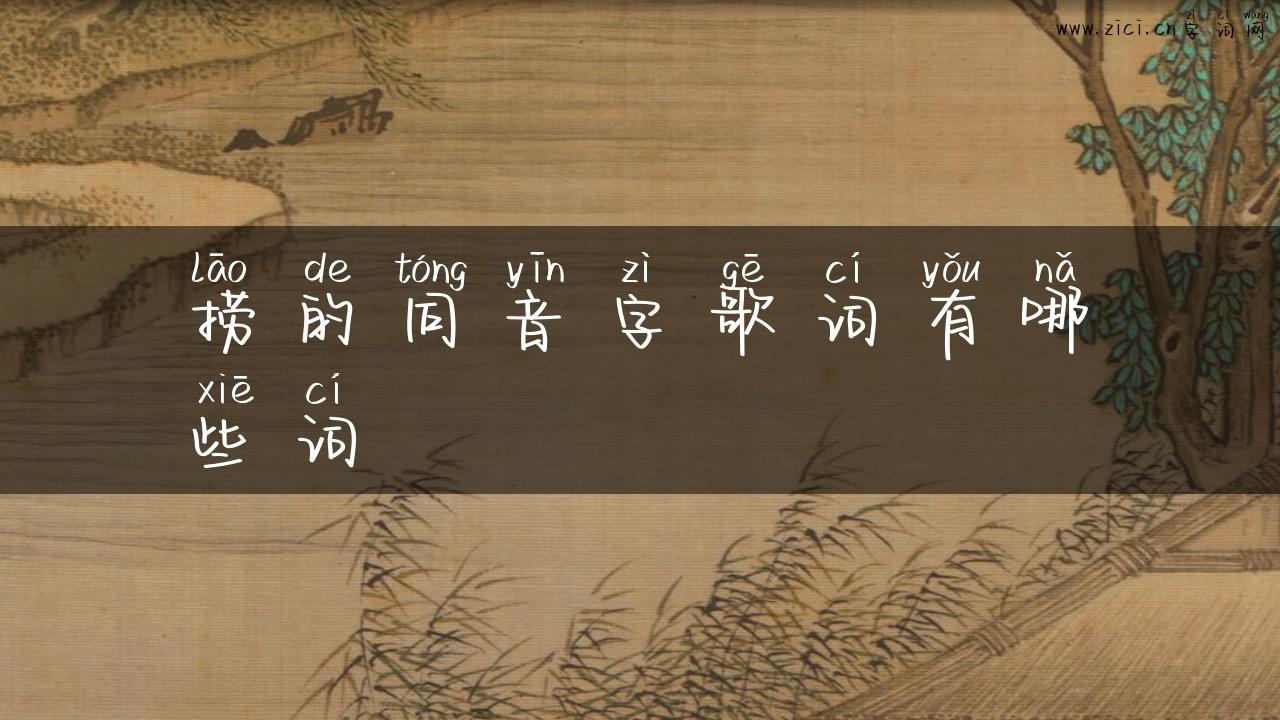 zì cí wǎng
www.zici.cn字词网
lāo de tóng yīn zì gē cí yǒu nǎ
捞的同音字歌词有哪
xiē cí
些词